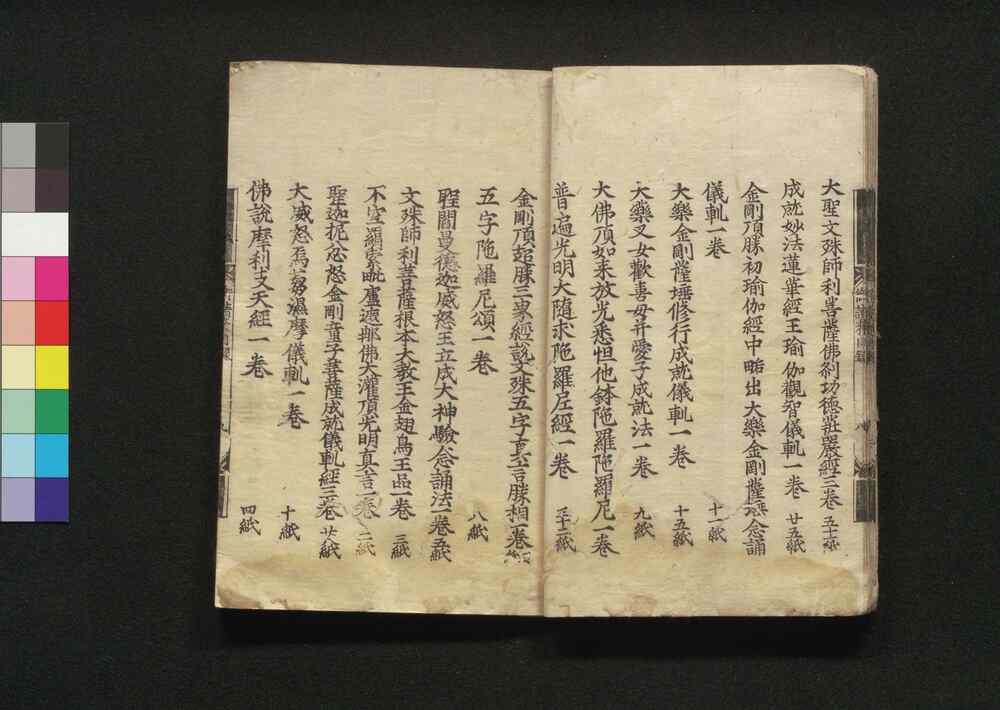 大聖文殊師利菩薩佛刹功德莊嚴經三卷 五十紙
成就妙法蓮華經王瑜伽觀智儀軌一卷 廿五紙
金剛頂勝初瑜伽經中略出大樂金剛薩埵念誦
儀軌一卷 十一紙
大樂金剛薩埵修行成就儀軌一卷 十五紙
大藥叉女歡喜母并愛子成就法一卷 九紙
大佛頂如来放光悉怛他鉢陁羅陁羅尼一卷
普遍光明大隨求陁羅尼經一卷 三十二紙
金剛頂超勝三界經說文殊五字真言勝相一卷
五字陁羅尼頌一卷 八紙
聖閻曼德迦威怒王立成大神驗念誦法一卷 五紙
文殊師利菩薩根本大教王金翅鳥王品一卷 三紙
不空羂索毗盧遮那佛大灌頂光明真言一卷 二紙
聖迦抳忿怒金剛童子菩薩成就儀軌經三卷 廿紙
大威怒烏蒭澁摩儀軌一卷 十紙
佛說摩利支天經一卷 四紙